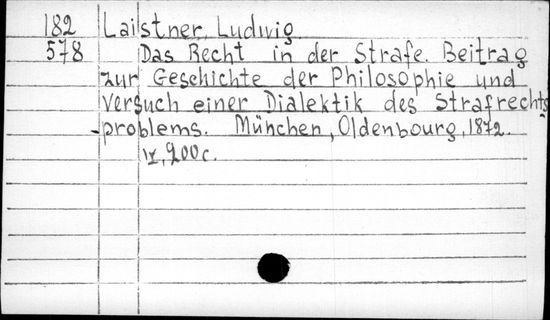 182 Laistner, Ludwig.
578 Das Recht in der Strafe. Beitrag
zur Geschichte der Philosophie und
Versuch einer Dialektik des Strafrechts-
problems. München, Oldenbourg, 1872.
IV, 200 c.